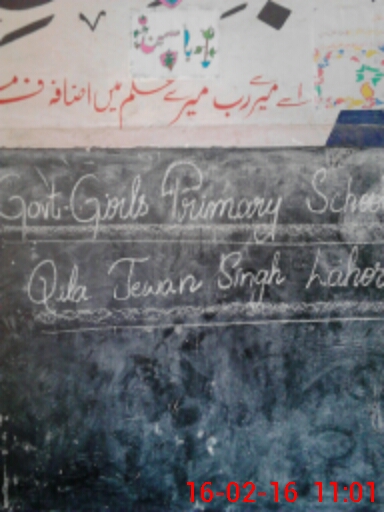 اے میرے رب میرے علم میں اضافہ
Govt. Girls Primary School
Qila Jewan Singh Lahor
16-02-16 11:01